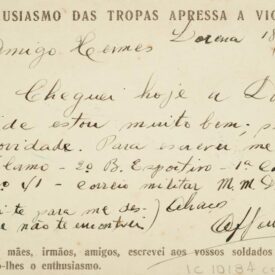 USIASMO DAS TROPAS APRESSA A VIC
Amigo Hermes Lorena 18
Cheguei hoje a Lo
de estou muito bem, s
ovidade. Para escrever me
- 2º B. Esportivo - 1ª C
Correio militar M.M.
te para me des-
não te encontrei)
mães, irmãos, amigos, escrevei aos vossos soldados
-lhes o enthusiasmo.
1C 10184